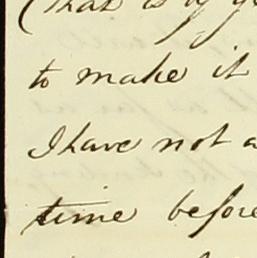 (that is by
to make it
I have not
time before